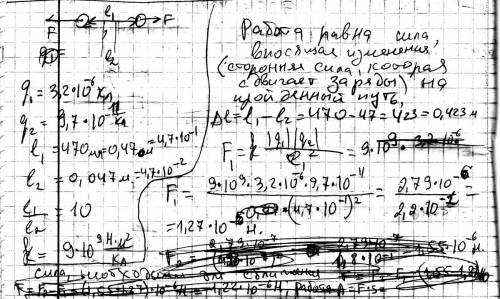 F l₁ F
l₂
q₁ = 3,2·10⁻⁶ кл
q₂ = 9,7·10⁻¹¹ кл
l₁ = 470 мм = 0,47 м = 4,7·10⁻¹
l₂ = 0,047 м = 4,7·10⁻²
l₁/l₂ = 10
k = 9·10⁹ Н·м²/кл
Работа равна сила,
вносящая изменения,
(сторонняя сила, которая
сдвигает заряды) на
пройденный путь,
Δl = l₁ - l₂ = 470 - 47 = 423 = 0,423 м
F₁ = k |q₁| |q₂| / l² = 9·10⁹· 3,2·10⁻⁶
F₁ = 9·10⁹·3,2·10⁻⁶·9,7·10⁻¹¹ / (4,7·10⁻¹)² = 2,79·10⁻⁶ / 2,2·10⁻¹ =
= 1,27·10 Н.
2,79·10⁻⁷ 2,79·10⁻⁷ 1,55·10⁻⁶
сила, необходимая для сближения
F = F₂ - F₁ = (1,55-1,27)·10⁻⁶ Н = 1,22·10⁻⁶ Н, работа A = F·s =